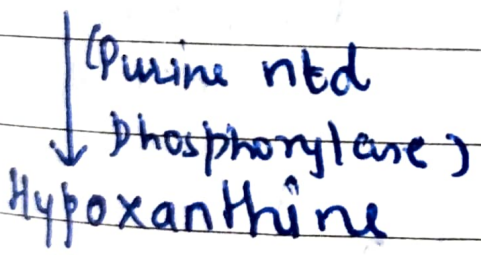 (Purine ntd
phosphorylase)
Hypoxanthine